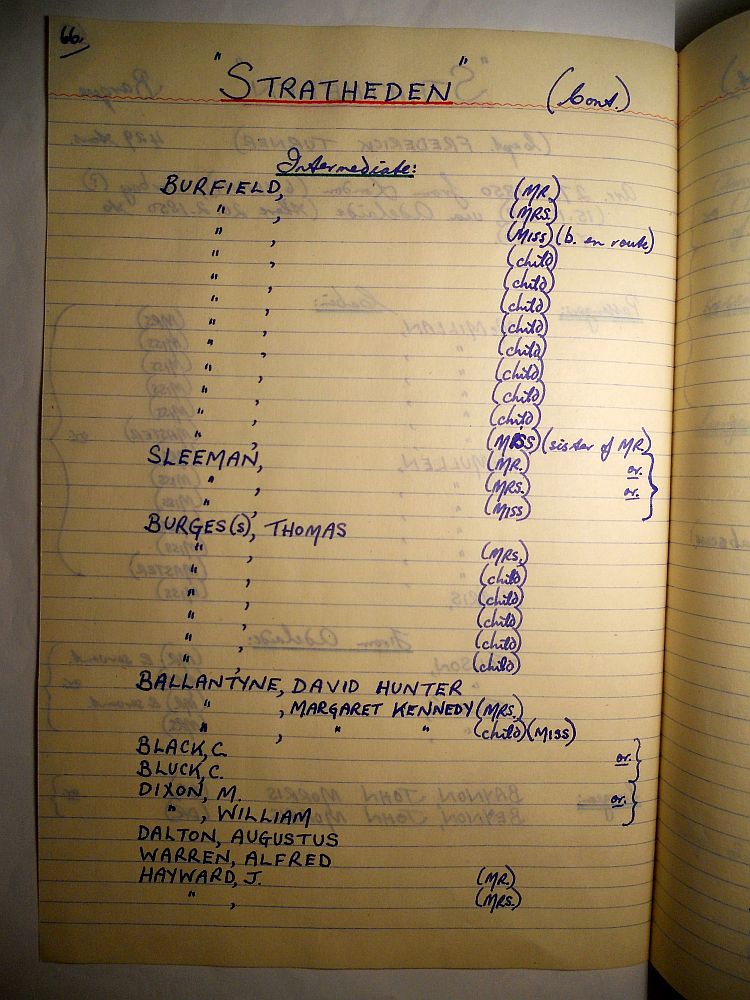 66.
"STRATHEDEN" (Cont.)
Intermediate:
BURFIELD, (MR.)
" , (MRS.)
" , (MISS) (b. en route)
" , (child)
" , (child)
" , (child)
" , (child)
" , (child)
" , (child)
" , (child)
" , (child)
" , (MISS) (sister of MR.)
SLEEMAN, (MR.) or.
" , (MRS.) or.
" , (MISS)
BURGES(s), THOMAS
" , (MRS.)
" , (child)
" , (child)
" , (child)
" , (child)
" , (child)
BALLANTYNE, DAVID HUNTER
" , MARGARET KENNEDY (MRS.)
" , " " (child) (MISS)
BLACK, C. or.
BLUCK, C.
DIXON, M. or.
" , WILLIAM
DALTON, AUGUSTUS
WARREN, ALFRED
HAYWARD, J. (MR.)
" , (MRS.)